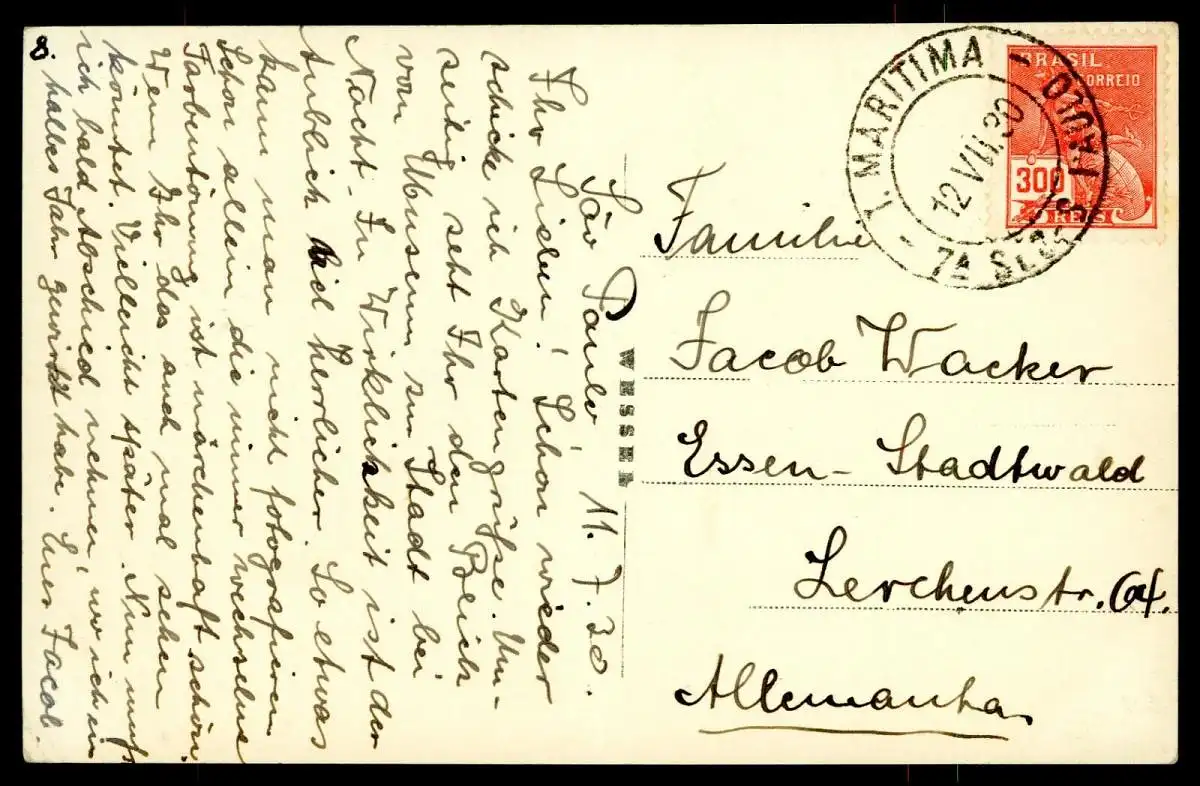 São Paulo 11.7.30.
Ihr Lieben! Schon wieder
schicke ich Kartengrüße. Um-
seitig seht Ihr den Bereich
vom Museum zur Stadt bei
Nacht. In Wirklichkeit ist der
Anblick viel herrlicher. So etwas
kann man nicht fotografieren
Schon allein die immer wechselnde
Farbentönung ist märchenhaft schön.
Wenn Ihr das auch mal sehen
könntet. Vielleicht später. Nun muß
ich bald Abschied nehmen, wo ich ein
halbes Jahr gewirkt habe. Euer Jacob.
8.
WESSEL
BRASIL
CORREIO
300
REIS
T. MARITIMA - S. PAULO
12 VII.30
7A SEC
Familie
Jacob Wacker
Essen-Stadtwald
Lerchenstr. 64.
Allemanha